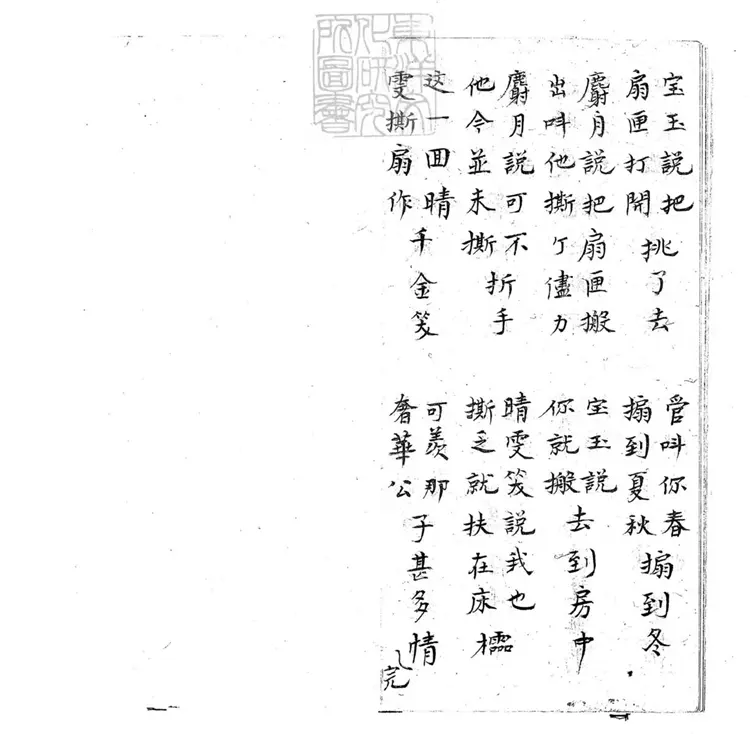 東洋文化研究所圖書
宝玉說把扇匣打開挑了去
管叫你春搧到夏秋搧到冬
麝月說把扇匣搬出叫他撕个儘力
宝玉說你就搬去到房中
麝月說可不他今並未撕折手
晴雯笑說我也撕乏就扶在床櫺
这一回晴雯撕扇作千金笑
可羡那奢華公子甚多情
完